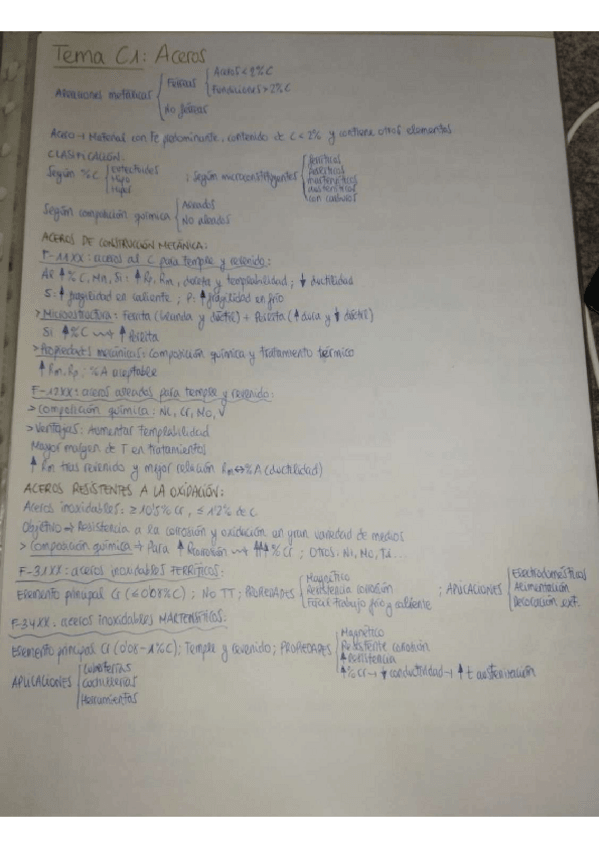 Tema C1: Aceros
Aleaciones metálicas { Férreas { Aceros < 2% C
Fundiciones > 2% C
No férreas
Acero → Material con Fe predominante, contenido de C < 2% y contiene otros elementos
CLASIFICACIÓN:
Según %C { Eutectoides
Hipo
Hiper
; Según microconstituyentes { ferríticos
perlíticos
martensíticos
austeníticos
con carburos
Según composición química { Aleados
No aleados
ACEROS DE CONSTRUCCIÓN MECÁNICA:
F-11XX: aceros al C para temple y revenido:
Al ↑ % C, Mn, Si: ↑ Rp, Rm, dureza y templabilidad; ↓ ductilidad
S: ↑ fragilidad en caliente; P: ↑ fragilidad en frío
> Microestructura: Ferrita (blanda y dúctil) + Perlita (↑ dura y ↓ dúctil)
Si ↑ %C ⟿ ↑ Perlita
> Propiedades mecánicas: composición química y tratamiento térmico
↑ Rm, Rp; %A aceptable
F-12XX: aceros aleados para temple y revenido:
> Composición química: Ni, Cr, Mo, V
> Ventajas: Aumentar templabilidad
Mayor margen de T en tratamientos
↑ Rm tras revenido y mejor relación Rm ↔ %A (ductilidad)
ACEROS RESISTENTES A LA OXIDACIÓN:
Aceros inoxidables: ≥ 10'5% Cr, ≤ 1'2% de C
Objetivo → Resistencia a la corrosión y oxidación en gran variedad de medios
> Composición química → Para ↑ Rcorrosión ⟿ ↑↑↑ % Cr; Otros: Ni, Mo, Ti...
F-31XX: aceros inoxidables FERRÍTICOS:
Elemento principal Cr (≤ 0'08% C); No TT; PROPIEDADES { Magnético
Resistencia corrosión
Fácil trabajo frío y caliente
; APLICACIONES { Electrodomésticos
Alimentación
Decoración ext.
F-34XX: acesos inoxidables MARTENSÍTICOS:
Elemento principal Cr (0'08-1% C); Temple y revenido; PROPIEDADES { Magnético
Resistente corrosión
↑ Resistencia
↑ % Cr → ↓ conductividad → ↑ t austenización
APLICACIONES { Cuberterías
Cuchillerías
Herramientas